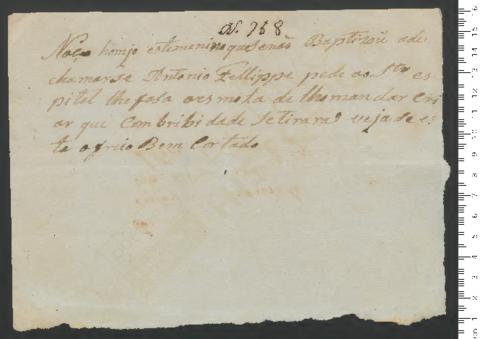 N. 958
Naçeo homje estemenino que senão Baptizou ade
chamarse Antonio Fellippe pede ao Sr es
pital lhe fasa aesmola de lhomandar Cri
ar que Com bribidade setirara veja se es
ta ofreio Bem Cortado